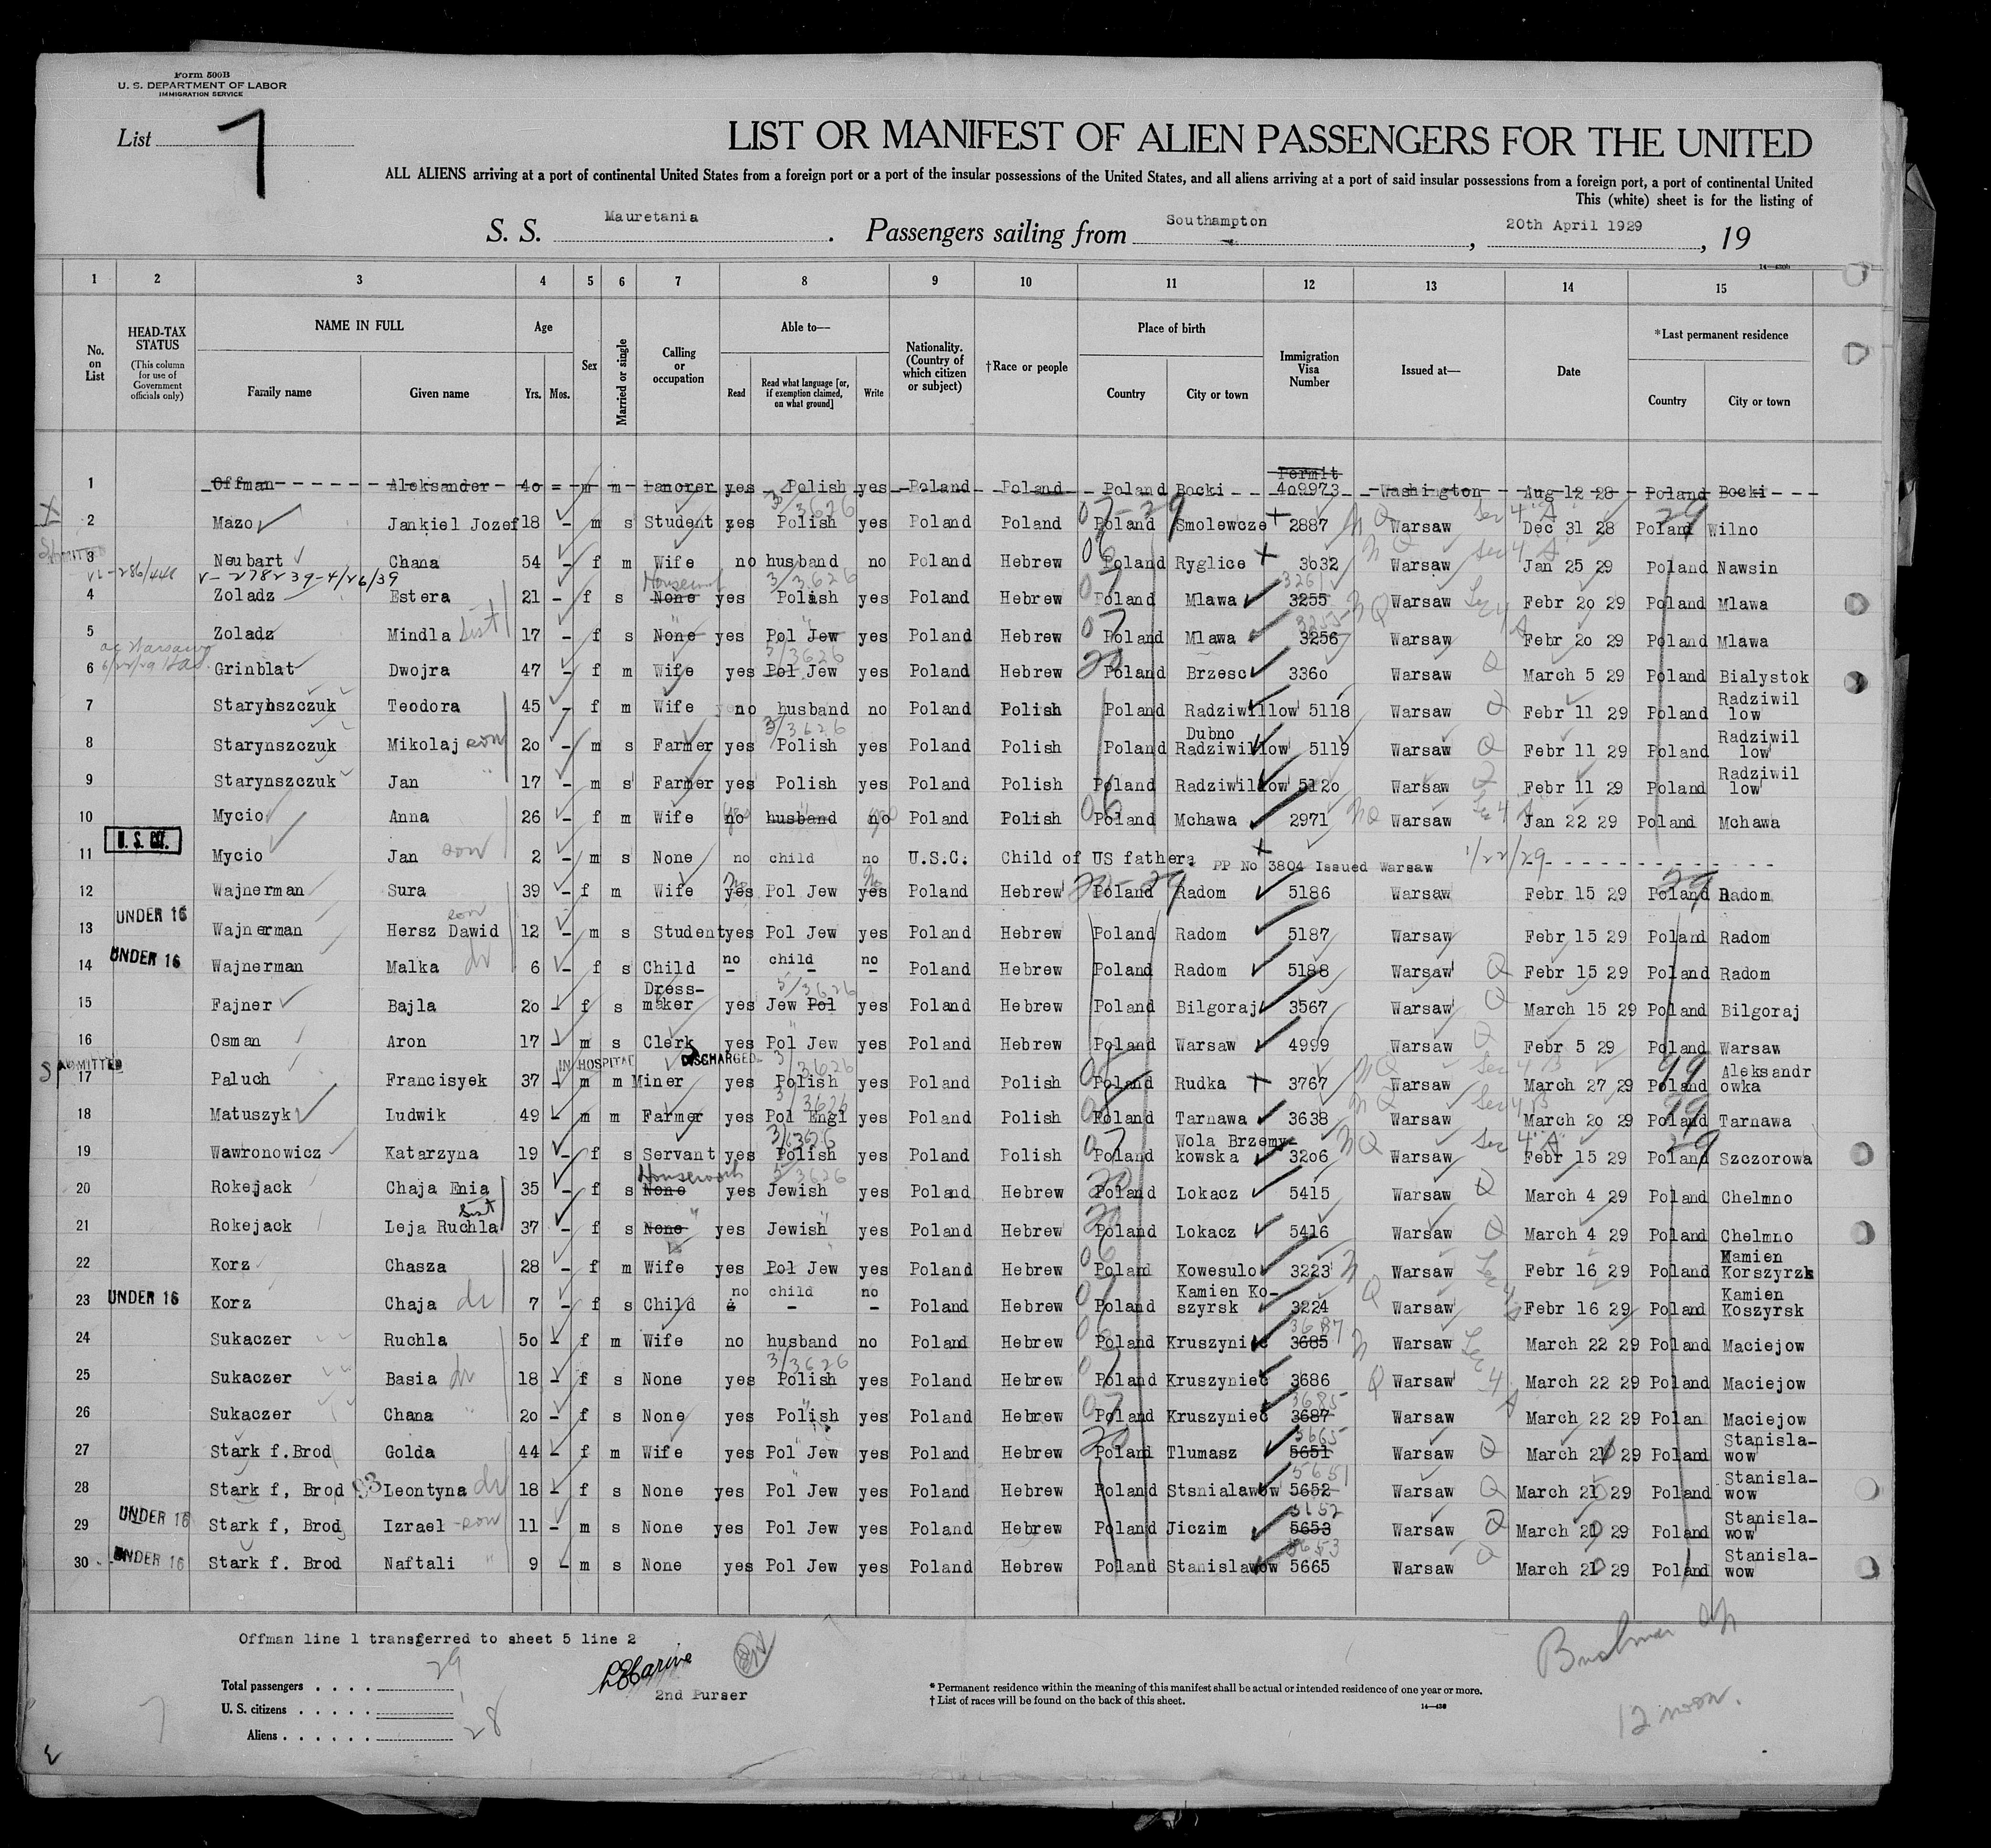 Form 500B
U. S. DEPARTMENT OF LABOR
IMMIGRATION SERVICE
List 7
LIST OR MANIFEST OF ALIEN PASSENGERS FOR THE UNITED
ALL ALIENS arriving at a port of continental United States from a foreign port or a port of the insular possessions of the United States, and all aliens arriving at a port of said insular possessions from a foreign port, a port of continental United
This (white) sheet is for the listing of
S. S. Mauretania. Passengers sailing from Southampton, 20th April 1929, 19
1 2 3 4 5 6 7 8 9 10 11 12 13 14 15
No. on List
HEAD-TAX STATUS (This column for use of Government officials only)
NAME IN FULL Family name Given name
Age Yrs. Mos.
Sex
Married or single
Calling or occupation
Able to— Read Read what language [or, if exemption claimed, on what ground] Write
Nationality. (Country of which citizen or subject)
†Race or people
Place of birth Country City or town
Immigration Visa Number
Issued at—
Date
*Last permanent residence Country City or town
1 Offman Aleksander 40 - m m Laborer yes Polish yes Poland Poland Poland Bocki Permit 409973 Washington Aug 12 28 Poland Bocki
2 Mazo Jankiel Jozef 18 - m s Student yes Polish yes Poland Poland Poland Smolewcze 2887 Warsaw Dec 31 28 Poland Wilno
3 Neubart Chana 54 - f m Wife no husband no Poland Hebrew Poland Ryglice 3032 Warsaw Jan 25 29 Poland Nawsin
4 Zoladz Estera 21 - f s None yes Polish yes Poland Hebrew Poland Mlawa 3261 3255 Warsaw Febr 20 29 Poland Mlawa
5 Zoladz Mindla Sist 17 - f s None yes Pol Jew yes Poland Hebrew Poland Mlawa 3255 3256 Warsaw Febr 20 29 Poland Mlawa
6 Grinblat Dwojra 47 - f m Wife yes Pol Jew yes Poland Hebrew Poland Brzesc 3360 Warsaw March 5 29 Poland Bialystok
7 Starynszczuk Teodora 45 - f m Wife no husband no Poland Polish Poland Radziwillow 5118 Warsaw Febr 11 29 Poland Radziwil low
8 Starynszczuk Mikolaj son 20 - m s Farmer yes Polish yes Poland Polish Poland Dubno Radziwillow 5119 Warsaw Febr 11 29 Poland Radziwil low
9 Starynszczuk Jan " 17 - m s Farmer yes Polish yes Poland Polish Poland Radziwillow 5120 Warsaw Febr 11 29 Poland Radziwil low
10 Mycio Anna 26 - f m Wife no husband no Poland Polish Poland Mchawa 2971 Warsaw Jan 22 29 Poland Mchawa
11 U. S. CIT. Mycio Jan son 2 - m s None no child no U.S.C. Child of US father PP No 3804 Issued Warsaw 1/22/29
12 Wajnerman Sura 39 - f m Wife yes Pol Jew yes Poland Hebrew Poland Radom 5186 Warsaw Febr 15 29 Poland Radom
13 UNDER 16 Wajnerman Hersz Dawid son 12 - m s Student yes Pol Jew yes Poland Hebrew Poland Radom 5187 Warsaw Febr 15 29 Poland Radom
14 UNDER 16 Wajnerman Malka dr 6 - f s Child no child no Poland Hebrew Poland Radom 5188 Warsaw Febr 15 29 Poland Radom
15 Fajner Bajla 20 - f s Dress-maker yes Jew Pol yes Poland Hebrew Poland Bilgoraj 3567 Warsaw March 15 29 Poland Bilgoraj
16 Osman Aron 17 - m s Clerk yes Pol Jew yes Poland Hebrew Poland Warsaw 4999 Warsaw Febr 5 29 Poland Warsaw
ADMITTED IN HOSPITAL DISCHARGED
17 Paluch Francisyek 37 - m m Miner yes Polish yes Poland Polish Poland Rudka 3767 Warsaw March 27 29 Poland Aleksandr owka
18 Matuszyk Ludwik 49 - m m Farmer yes Pol Engl yes Poland Polish Poland Tarnawa 3638 Warsaw March 20 29 Poland Tarnawa
19 Wawronowicz Katarzyna 19 - f s Servant yes Polish yes Poland Polish Poland Wola Brzemy-kowska 3206 Warsaw Febr 15 29 Poland Szczorowa
20 Rokejack Chaja Enia 35 - f s None Housework yes Jewish yes Poland Hebrew Poland Lokacz 5415 Warsaw March 4 29 Poland Chelmno
21 Rokejack Leja Ruchla Sist 37 - f s None " yes Jewish yes Poland Hebrew Poland Lokacz 5416 Warsaw March 4 29 Poland Chelmno
22 Korz Chasza 28 - f m Wife yes Pol Jew yes Poland Hebrew Poland Kowesulo 3223 Warsaw Febr 16 29 Poland Kamien Korszyrzk
23 UNDER 16 Korz Chaja dr 7 - f s Child no child no Poland Hebrew Poland Kamien Ko-szyrsk 3224 Warsaw Febr 16 29 Poland Kamien Koszyrsk
24 Sukaczer Ruchla 50 - f m Wife no husband no Poland Hebrew Poland Kruszyniec 3687 3685 Warsaw March 22 29 Poland Maciejow
25 Sukaczer Basia dr 18 - f s None yes Polish yes Poland Hebrew Poland Kruszyniec 3686 Warsaw March 22 29 Poland Maciejow
26 Sukaczer Chana " 20 - f s None yes Polish yes Poland Hebrew Poland Kruszyniec 3685 3687 Warsaw March 22 29 Polan Maciejow
27 Stark f.Brod Golda 44 - f m Wife yes Pol Jew yes Poland Hebrew Poland Tlumasz 5665 5651 Warsaw March 21 29 Poland Stanisla-wow
28 Stark f, Brod Leontyna dr 18 - f s None yes Pol Jew yes Poland Hebrew Poland Stsnialawow 5651 5652 Warsaw March 21 29 Poland Stanisla-wow
29 UNDER 16 Stark f, Brod Izrael son 11 - m s None yes Pol Jew yes Poland Hebrew Poland Jiczim 5652 5653 Warsaw March 21 29 Poland Stanisla-wow
30 UNDER 16 Stark f. Brod Naftali " 9 - m s None yes Pol Jew yes Poland Hebrew Poland Stanislawow 5653 5665 Warsaw March 21 29 Poland Stanisla-wow
Offman line 1 transferred to sheet 5 line 2
Total passengers . . . . 29
U. S. citizens . . . . . 1
Aliens . . . . . . 28
2nd Purser
* Permanent residence within the meaning of this manifest shall be actual or intended residence of one year or more.
† List of races will be found on the back of this sheet.
14—430
12 noon.